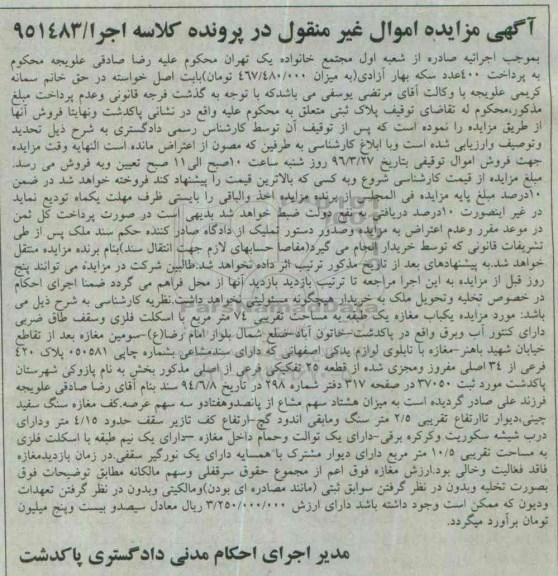 آگهی مزایده اموال غیر منقول در پرونده کلاسه اجرا/۹۵۱۴۸۳
بموجب اجرائیه صادره از شعبه اول مجتمع خانواده یک تهران محکوم علیه رضا صادقی علویجه محکوم
به پرداخت ۴۰۰عدد سکه بهار آزادی(به میزان ۴۶۷/۴۸۰/۰۰۰ تومان)بابت اصل خواسته در حق خانم سمانه
کریمی علویجه با وکالت آقای مرتضی یوسفی می باشدکه با توجه به گذشت فرجه قانونی وعدم پرداخت مبلغ
مذکور،محکوم له تقاضای توقیف پلاک ثبتی متعلق به محکوم علیه واقع در نشانی پاکدشت ونهایتا فروش آنها
از طریق مزایده را نموده است که پس از توقیف آن توسط کارشناس رسمی دادگستری به شرح ذیل تحدید
وتوصیف وارزیابی شده است وبا ابلاغ کارشناسی به طرفین که مصون از اعتراض مانده است النهایه وقت مزایده
جهت فروش اموال توقیفی بتاریخ ۹۶/۳/۲۷ روز شنبه ساعت ۱۰صبح الی۱۱ صبح تعیین وبه فروش می رسد.
مبلغ مزایده از قیمت کارشناسی شروع وبه کسی که بالاترین قیمت را پیشنهاد کند فروخته خواهد شد در ضمن
۱۰درصد مبلغ پایه مزایده فی المجلس از برنده مزایده اخذ والباقی را بایستی ظرف مهلت یکماه تودیع نماید
در غیر اینصورت ۱۰درصد دریافتی به نفع دولت ضبط خواهد شد بدیهی است در صورت پرداخت کل ثمن
در موعد مقرر وعدم اعتراض به مزایده وصدور دستور تملیک از دادگاه صادر کننده حکم سند ملک پس از طی
تشریفات قانونی که توسط خریدار انجام می گیرد(مفاصا حسابهای لازم جهت انتقال سند)بنام برنده مزایده منتقل
خواهد شد.به پیشنهادهای بعد از تاریخ مذکور ترتیب اثر داده نخواهد شد.طالبین شرکت در مزایده می توانند پنج
روز قبل از مزایده به این اجرا مراجعه تا ترتیب بازدید بازدید آنها از محل فراهم می گردد ضمنا اجرای احکام
در خصوص تخلیه وتحویل ملک به خریدار هیچگونه مسئولیتی نخواهد داشت.نظریه کارشناسی به شرح ذیل می
باشد: مورد مزایده یکباب مغازه یک طبقه به مساحت تقریبی ۷۴ متر مربع با اسکلت فلزی وسقف طاق ضربی
دارای کنتور آب وبرق واقع در پاکدشت-خاتون آباد-ضلع شمال بلوار امام رضا(ع)-سومین مغازه بعد از تقاطع
خیابان شهید باهنر-مغازه با تابلوی لوازم یدکی اصفهانی که دارای سندمشاعی بشماره چاپی ۰۵۰۵۸۱ پلاک ۴۲۰
فرعی از ۳۴ اصلی مفروز ومجزی شده از قطعه ۲۵ تفکیکی فرعی از اصلی مذکور بخش به نام پازوکی شهرستان
پاکدشت مورد ثبت ۳۷۰۵۰ در صفحه ۳۱۷ دفتر شماره ۲۹۸ در تاریخ ۹۴/۶/۸ سند بنام آقای رضا صادقی علویجه
فرزند علی صادر گردیده است به میزان هشتاد سهم مشاع از پانصدوهفتادو سه سهم عرصه.کف مغازه سنگ سفید
چینی،دیوار تاارتفاع تقریبی ۲/۵ متر سنگ ومابقی اندود گچ-ارتفاع کف تازیر سقف حدود ۴/۱۵ متر ودارای
درب شیشه سکوریت وکرکره برقی-دارای یک توالت وحمام داخل مغازه –دارای یک نیم طبقه با اسکلت فلزی
به مساحت تقریبی ۱۰/۵ متر مربع دارای دیوار مشترک با همسایه دارای یک نورگیر سقفی.در زمان بازدیدمغازه
فاقد فعالیت وخالی بود.ارزش مغازه فوق اعم از مجموع حقوق سرقفلی وسهم مالکانه مطابق توضیحات فوق
بصورت تخلیه وبدون در نظر گرفتن سوابق ثبتی (مانند مصادره ای بودن)ومالکیتی وبدون در نظر گرفتن تعهدات
ودیون که ممکن است وجود داشته باشد دارای ارزش ۳/۲۵۰/۰۰۰/۰۰۰ ریال معادل سیصدو بیست وپنج میلیون
تومان برآورد میگردد.
مدیر اجرای احکام مدنی دادگستری پاکدشت